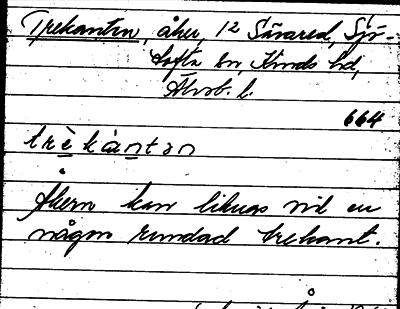 Trekanten, åker, 12 Sävared, Sjö-
tofta sn, Kinds hd,
Älvsb. l.
664
trèkàntən
Åkern kan liknas vid en
någon rundad trekant.